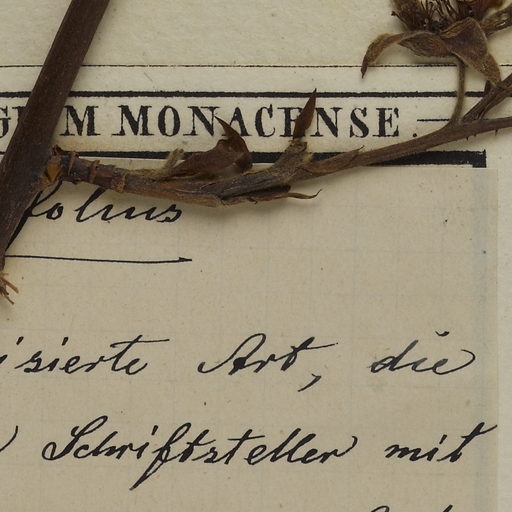 M MONACENSE.
folius
isierte Art, die
Schriftsteller mit